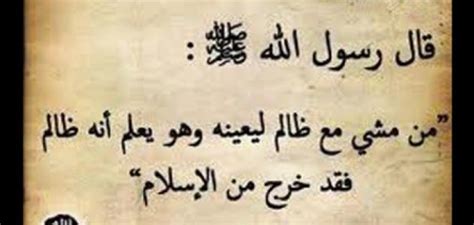 قال رسول الله ﷺ :
”من مشي مع ظالم ليعينه وهو يعلم أنه ظالم
فقد خرج من الإسلام“